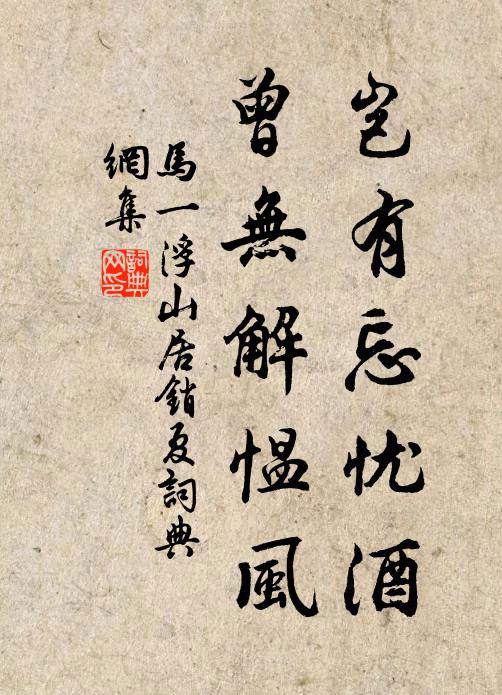 岂有忘忧酒
曾無解愠風
馬一浮山居銷夏詞典
網集
詞典
网印